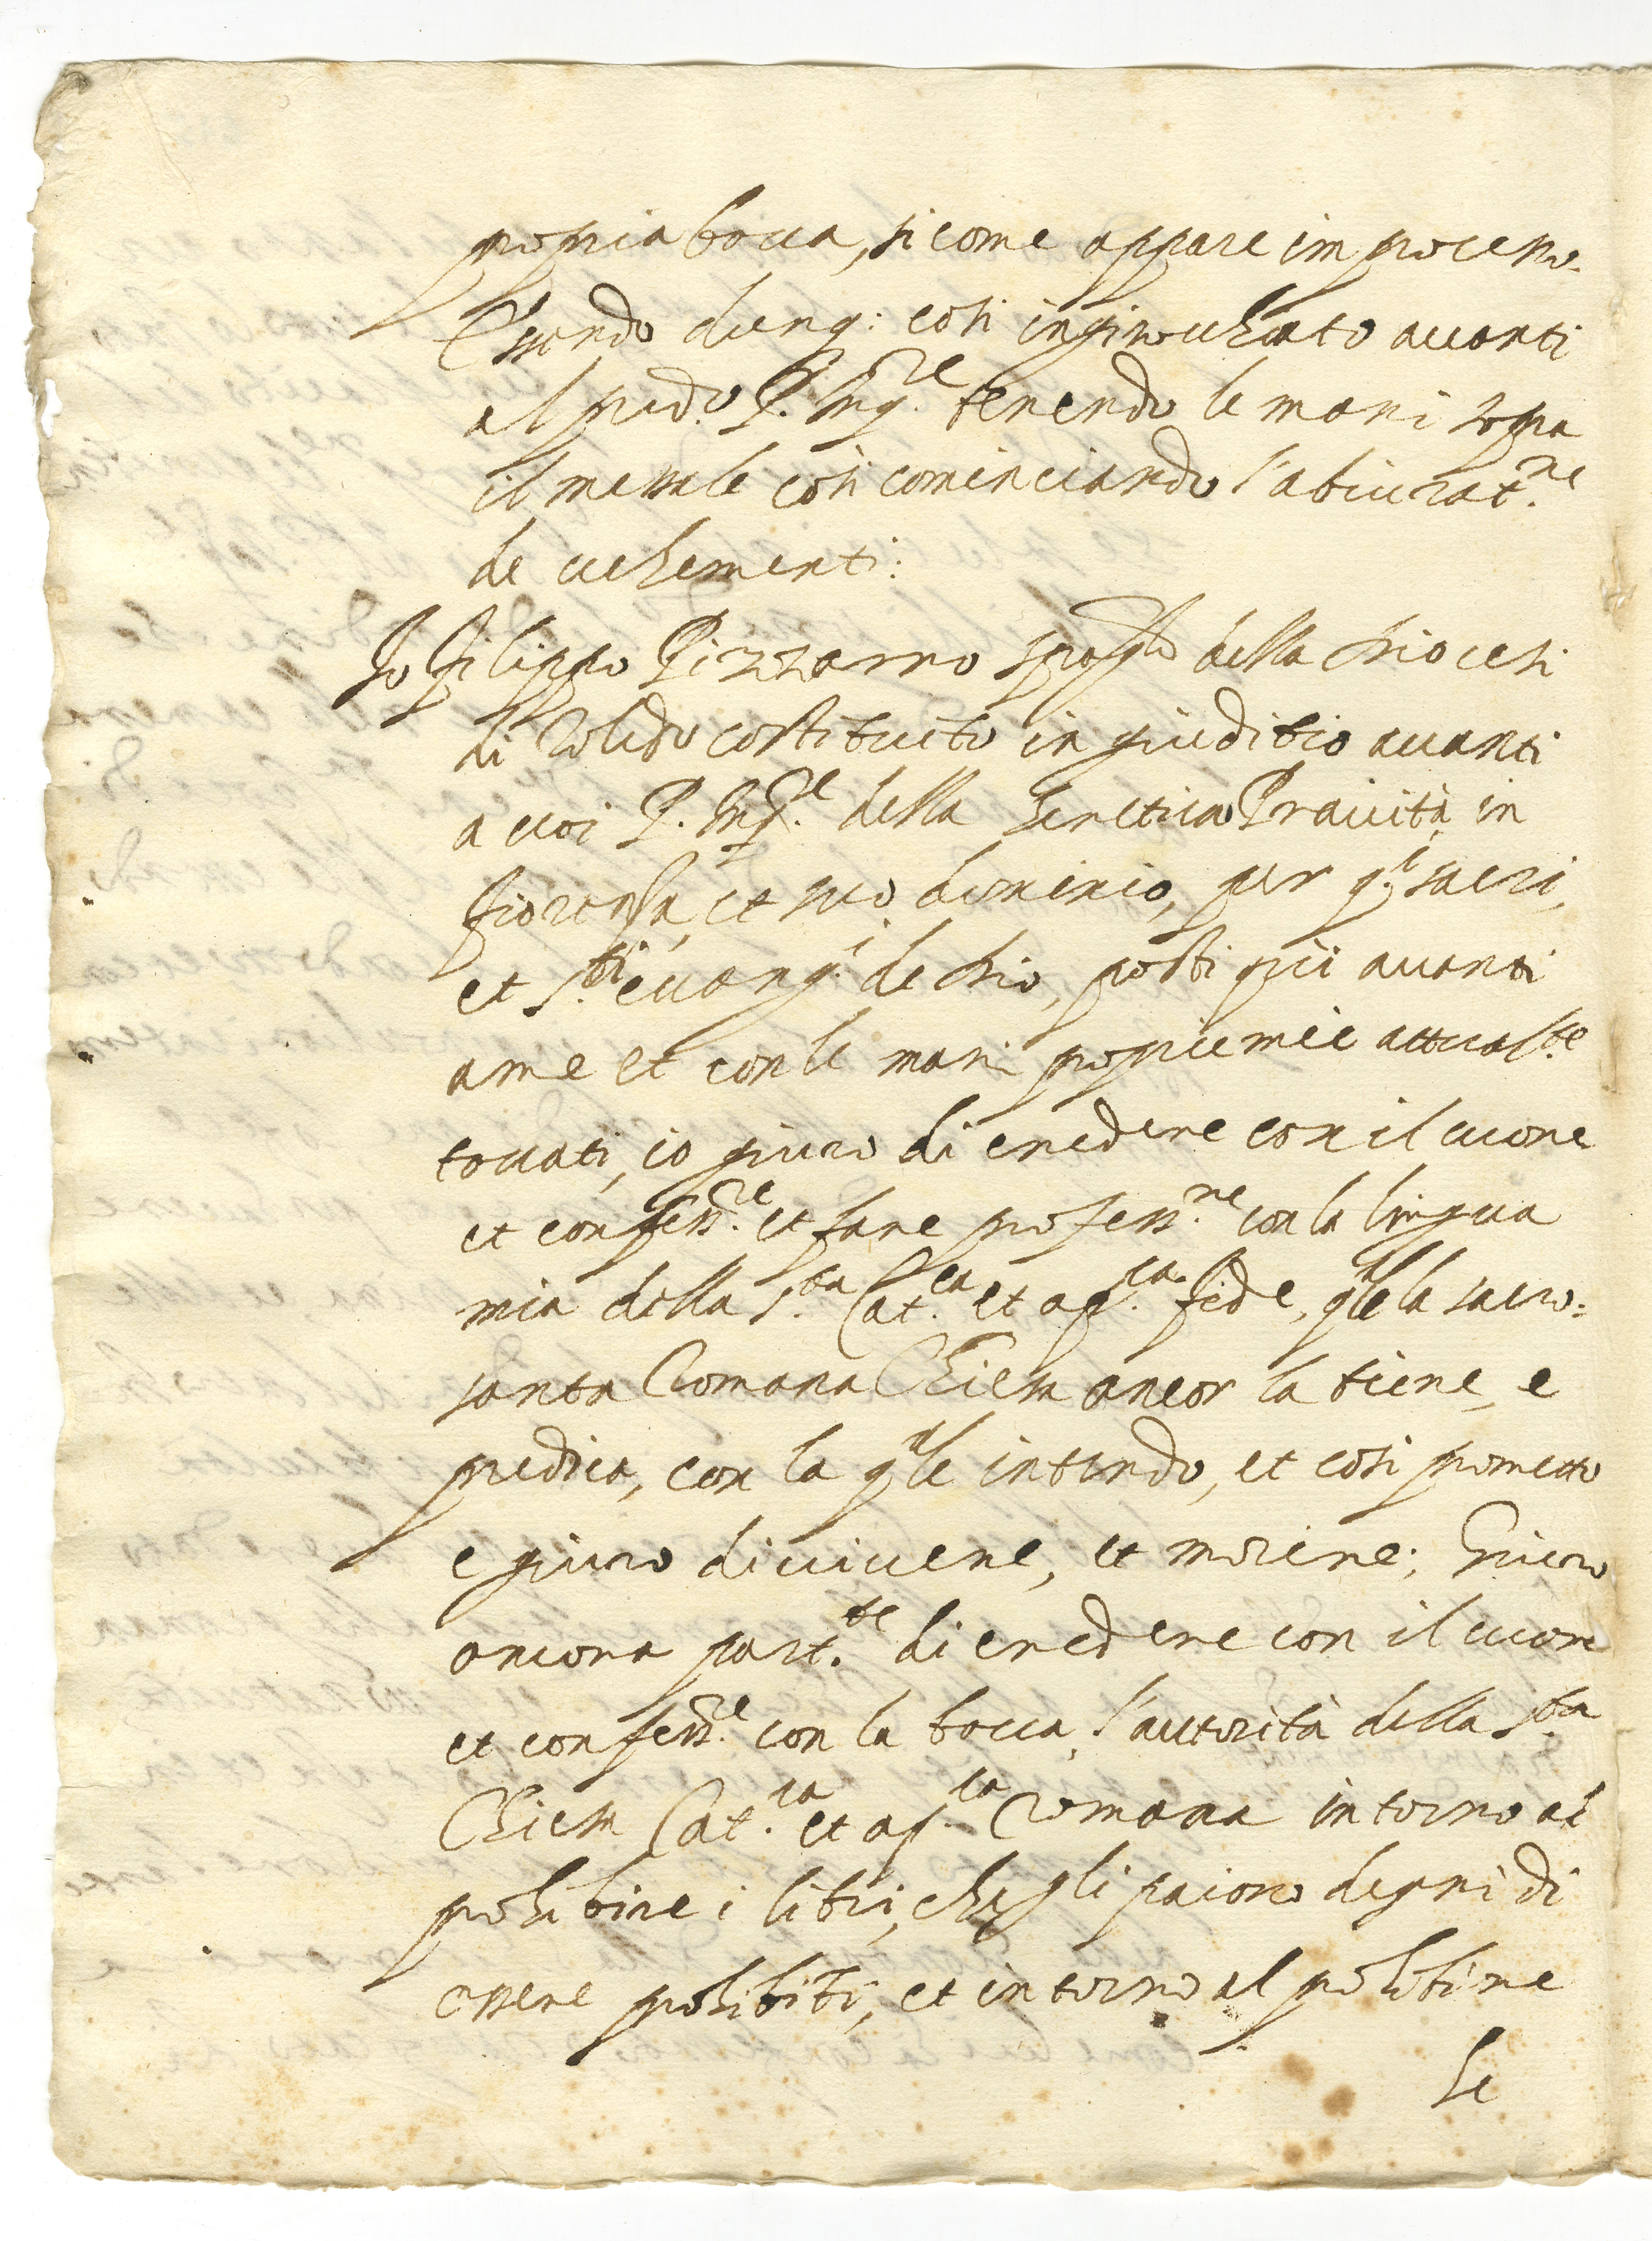 propria bocca, si come appare im processo.
Essendo dunq: cosi inginocchiato avanti
al predo. P. Inq.re tenendo le mani sopra
il messale così cominciando l'abiurat.ne
de vehementi:
Io Filippo Pizzarro spag.lo della diocesi
di Toledo costituito in giuditio avanti
a voi P. Inq.re della heretica Pravità in
Fiorenza, et suo dominio, per q.ti sacri,
et S.ti evang.i de dio, posti qui avanti
a me et con le mani proprie mie attual.te
toccati, io giuro di credere con il cuore
et confess.re et fare profess.ne con la lingua
mia della S.ta Cat.ca et ap.ca fede, q.le la sacro=
santa Romana Chiesa ancor la tiene, e
predica, con la q.le intendo, et così prometto
e giuro di vivere, et morire; Giuro
ancora part.te di credere con il cuore
et confess.re con la bocca, l'autorità della S.ta
Chiesa Cat.ca et ap.ca Romana intorno al
prohibire i libri, che gli paiono degni di
essere prohibiti, et intorno al prohibire
le